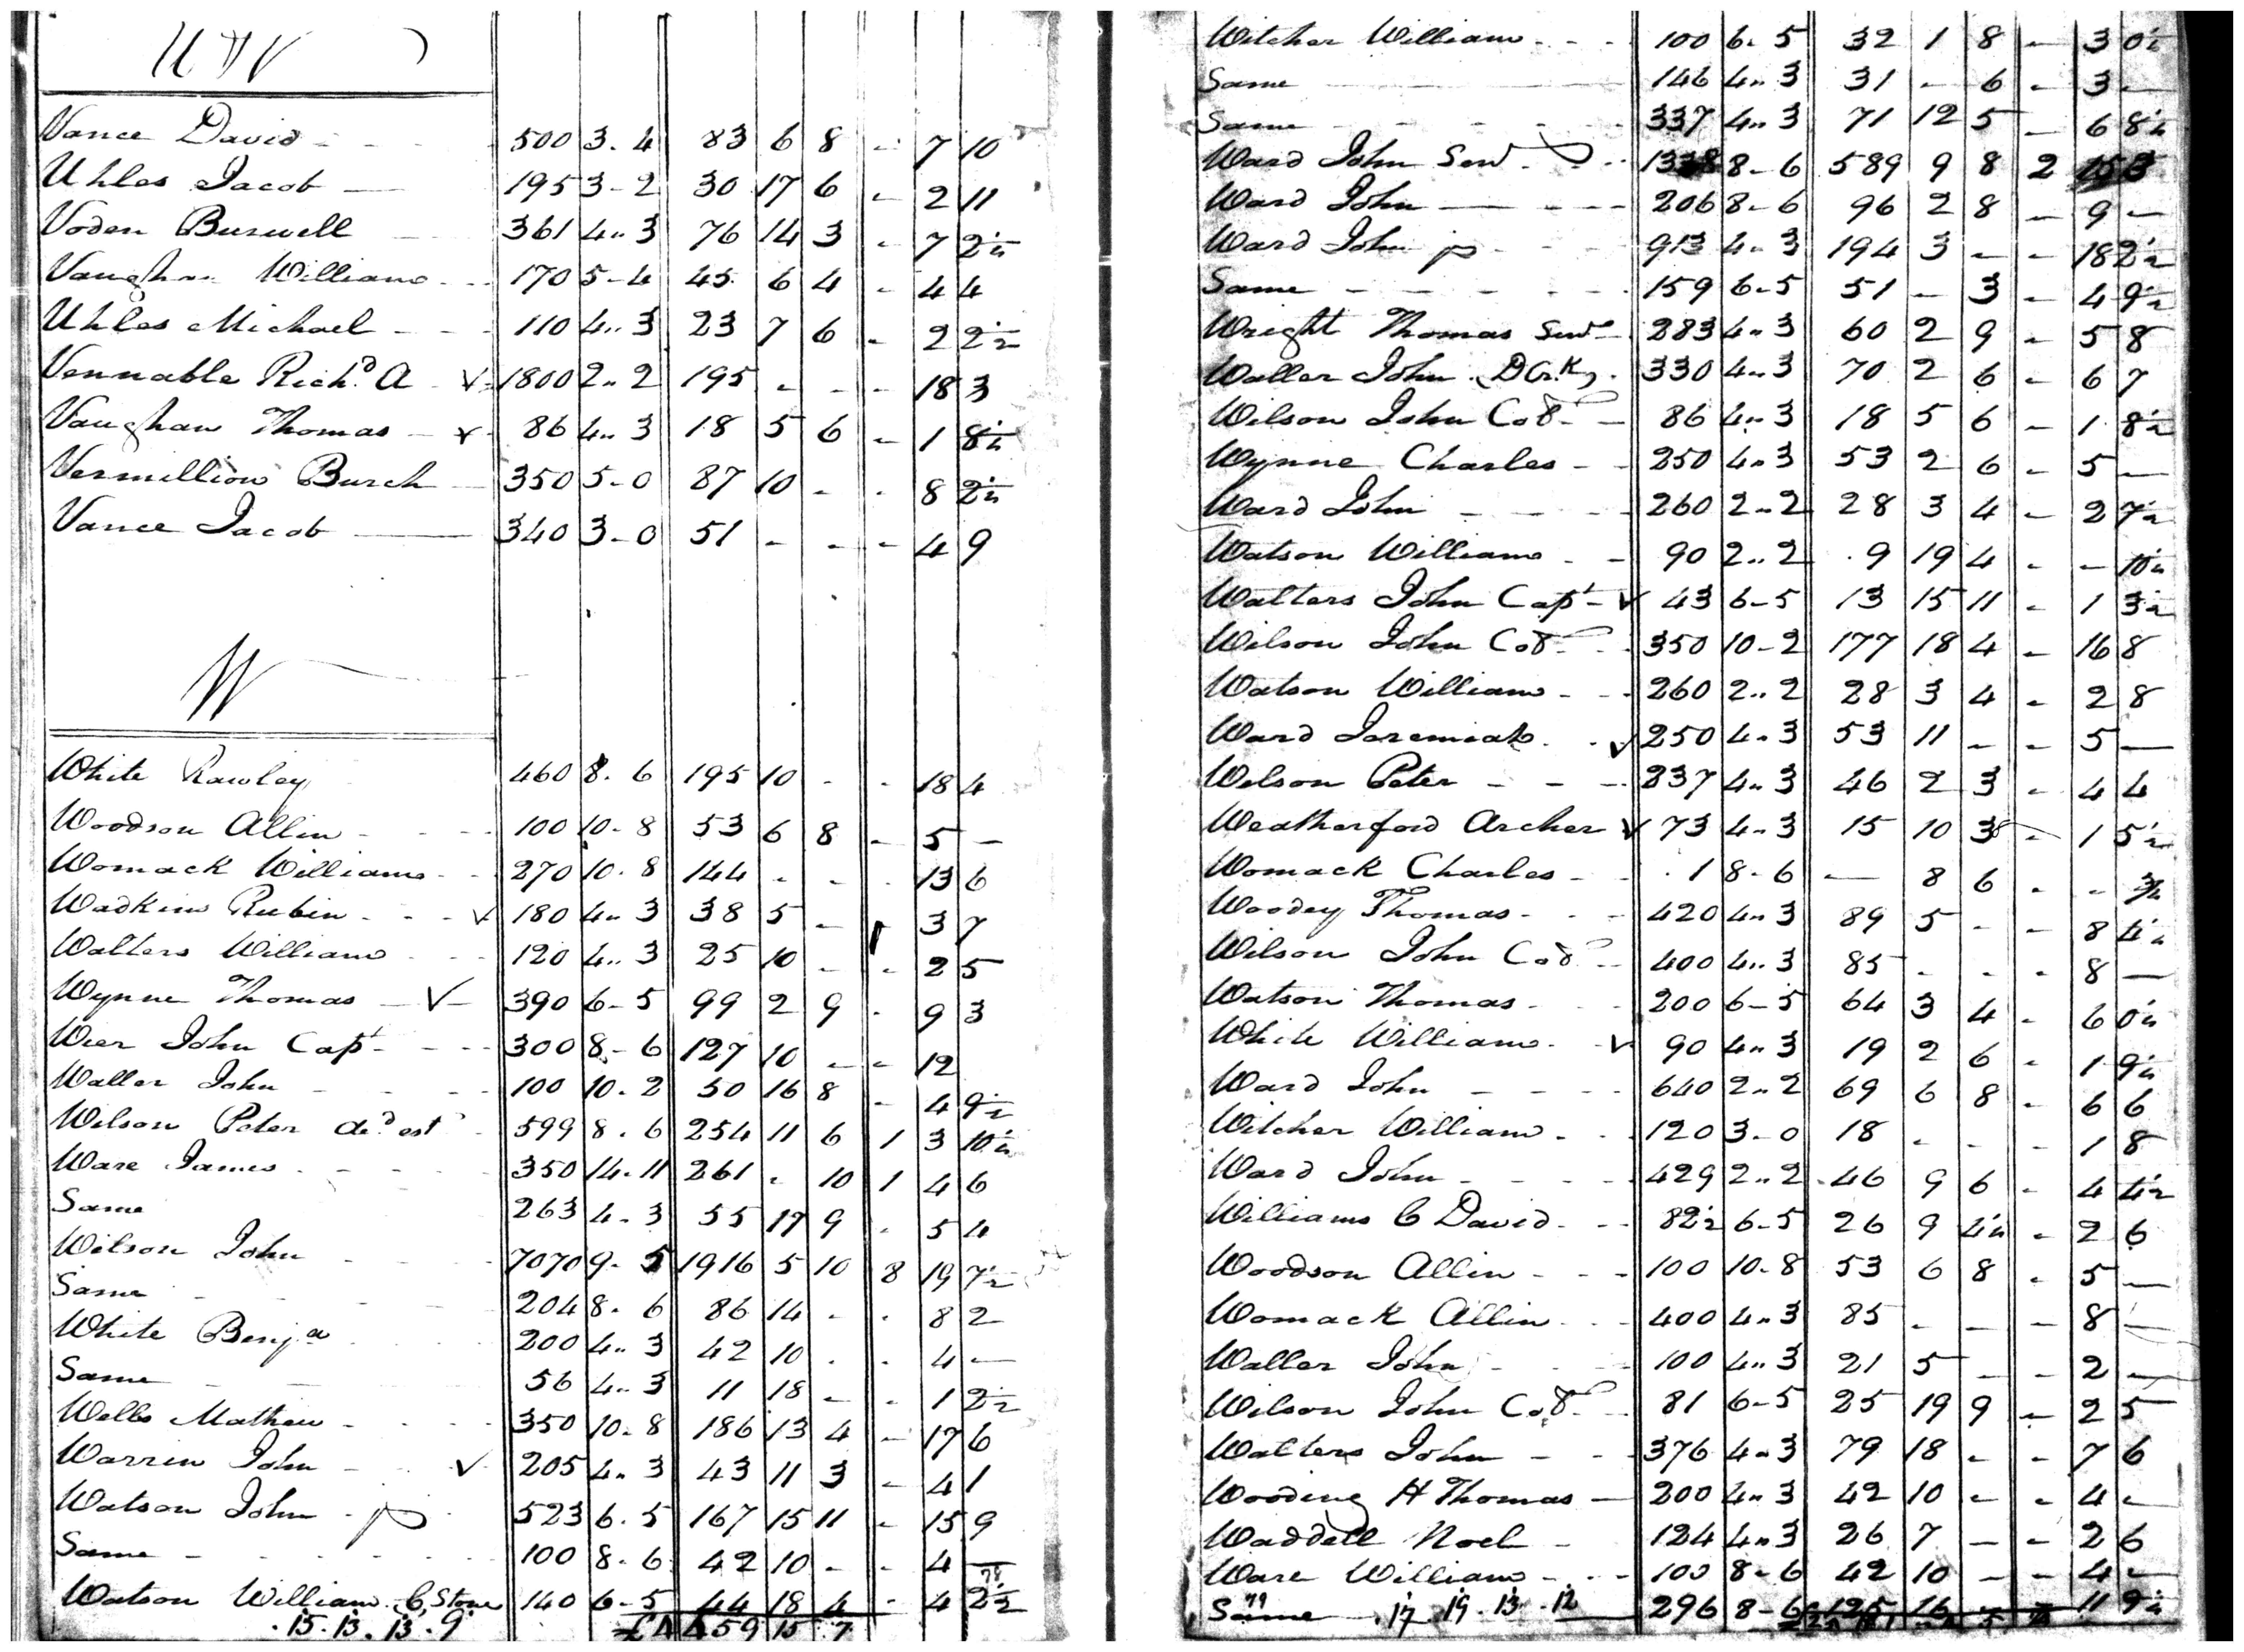 U & V
Vance David - 500 3-4 83 6 8 - 7 10
Uhles Jacob - 195 3-2 30 17 6 - 2 11
Voden Burwell 361 4..3 76 14 3 - 7 2½
Vaughan William 170 5-4 45 6 4 - 4 4
Uhles Michael - 110 4..3 23 7 6 - 2 2½
Vennable Richd A 1800 2..2 195 - - - 18 3
Vaughan Thomas - 86 4..3 18 5 6 - 1 8½
Vermillion Burch 350 5-0 87 10 - - 8 2½
Vance Jacob 340 3-0 51 - - - 4 9
W
White Rawley 460 8-6 195 10 - - 18 4
Woodson Allin 100 10-8 53 6 8 - 5 -
Womack William 270 10-8 144 - - - 13 6
Wadkins Rubin 180 4..3 38 5 - 3 7
Walters William 120 4..3 25 10 - - 2 5
Wynne Thomas 390 6-5 99 2 9 - 9 3
Wier John Capt 300 8-6 127 10 - - 12
Waller John 100 10-2 50 16 8 - 4 9½
Wilson Peter decd est 599 8-6 254 11 6 1 3 10½
Ware James 350 14-11 261 - 10 1 4 6
Same 263 4-3 55 17 9 - 5 4
Wilson John 7070 9-5 1916 5 10 8 19 7½
Same 204 8-6 86 14 - - 8 2
White Benja 200 4..3 42 10 - - 4 -
Same 56 4..3 11 18 - - 1 2½
Wells Mathew 350 10-8 186 13 4 - 17 6
Warrin John 205 4..3 43 11 3 - 4 1
Watson John 523 6-5 167 15 11 - 15 9
Same 100 8-6 42 10 - - 4
Watson William C, Stone 140 6-5 44 18 4 - 4 2½
15.13.13.9 £4459 15 7
Witcher William 100 6-5 32 1 8 - 3 0½
Same 146 4..3 31 - 6 - 3 -
Same 337 4..3 71 12 5 - 6 8½
Ward John Senr 8-6 589 9 8 2
Ward John 206 8-6 96 2 8 - 9 -
Ward John 913 4..3 194 3 - - 18 2½
Same 159 6-5 51 - 3 - 4 9½
Wright Thomas Senr 283 4..3 60 2 9 - 5 8
Waller John 330 4..3 70 2 6 - 6 7
Wilson John Col 86 4..3 18 5 6 - 1 8½
Wynne Charles 250 4..3 53 2 6 - 5 -
Ward John 260 2..2 28 3 4 - 2 7½
Watson William 90 2..2 9 19 4 - - 10½
Walters John Capt 43 6-5 13 15 11 - 1 3½
Wilson John Col 350 10-2 177 18 4 - 16 8
Watson William 260 2..2 28 3 4 - 2 8
Ward Jeremiah 250 4..3 53 11 - - 5 -
Wilson Peter 237 4..3 46 2 3 - 4 4
Weatherford Archer 73 4..3 15 10 3 - 1 5½
Womack Charles 1 8-6 - 8 6 - -
Woodey Thomas 420 4..3 89 5 - - 8 4½
Wilson John Col 400 4..3 85 - - - 8 -
Watson Thomas 200 6-5 64 3 4 - 6 0½
White William 90 4..3 19 2 6 - 1 9½
Ward John 640 2..2 69 6 8 - 6 6
Witcher William 120 3-0 18 - - - 1 8
Ward John 429 2..2 46 9 6 - 4 4½
Williams C David 82½ 6-5 26 9 4½ - 2 6
Woodson Allin 100 10-8 53 6 8 - 5 -
Womack Allin 400 4..3 85 - - - 8 -
Waller John 100 4..3 21 5 - - 2 -
Wilson John Col 81 6-5 25 19 9 - 2 5
Walters John 376 4..3 79 18 - - 7 6
Wooding H Thomas 200 4..3 42 10 - - 4 -
Waddell Noel 124 4..3 26 7 - - 2 6
Ware William 100 8-6 42 10 - - 4 -
Same 17 19.13.12 296 8-6 125 16 - - 11 9½